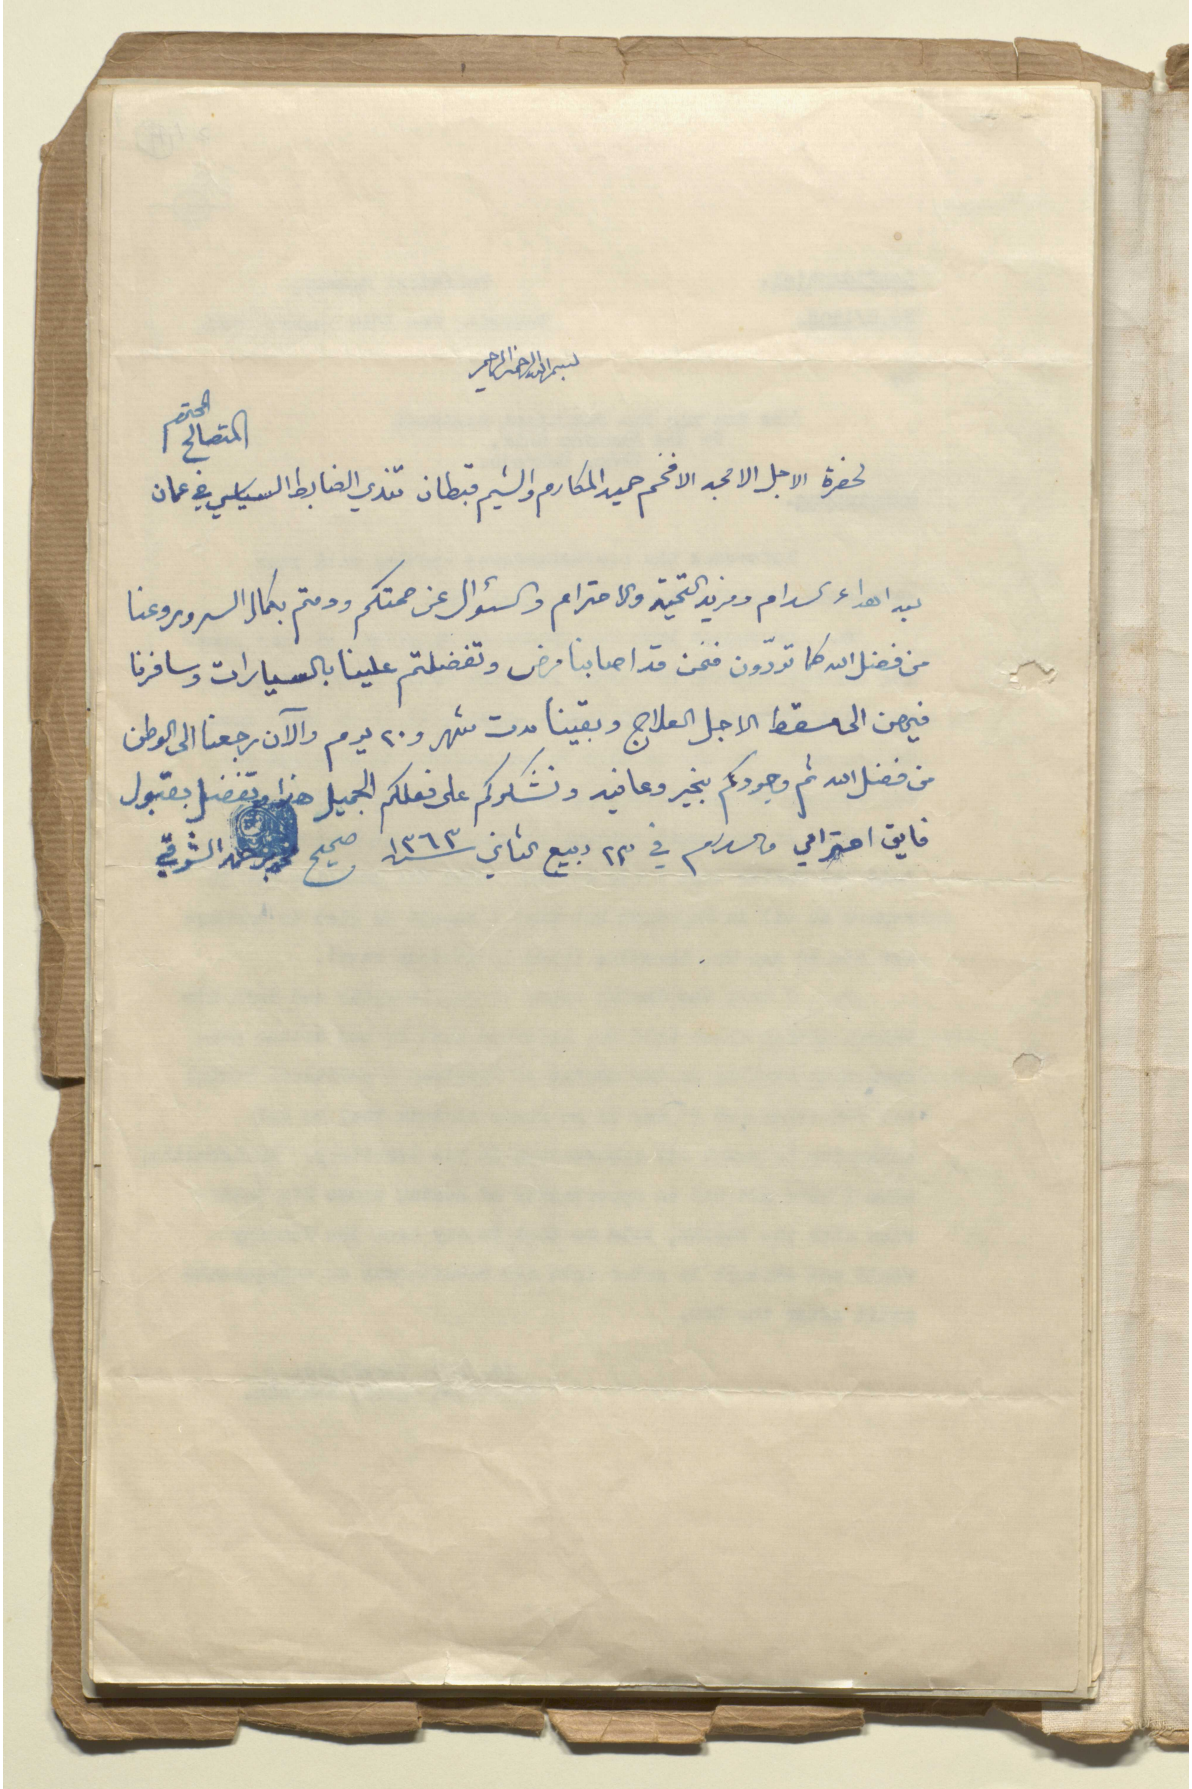 بسم الله الرحمن الرحيم
المحترم
المتصالح
لحضرة الاجل الامجد الافخم حميد المكارم والشيم قبطان تندي الضابط السياسي في عمان
بعد اهداء السلام ومزيد التحية والاحترام والسئوال عن صحتكم ودمتم بكمال السرور وعنا
من فضل الله كما تودّون فنحن قد اصابنا مرض وتفضلتم علينا بالسيارات وسافرنا
فيهن الى مسقط الاجل العلاج وبقينا مدت شهر و٢٠ يوم والآن رجعنا الى الوطن
من فضل الله ثم وجودكم بخير وعافيه ونشكركم على فعلكم الجميل هذا وتفضل بقبول
فايق احترامي والسلام في ٢٣ ربيع الثاني سنة ١٣٦٣ صحيح محمد بن حمد الشرقي